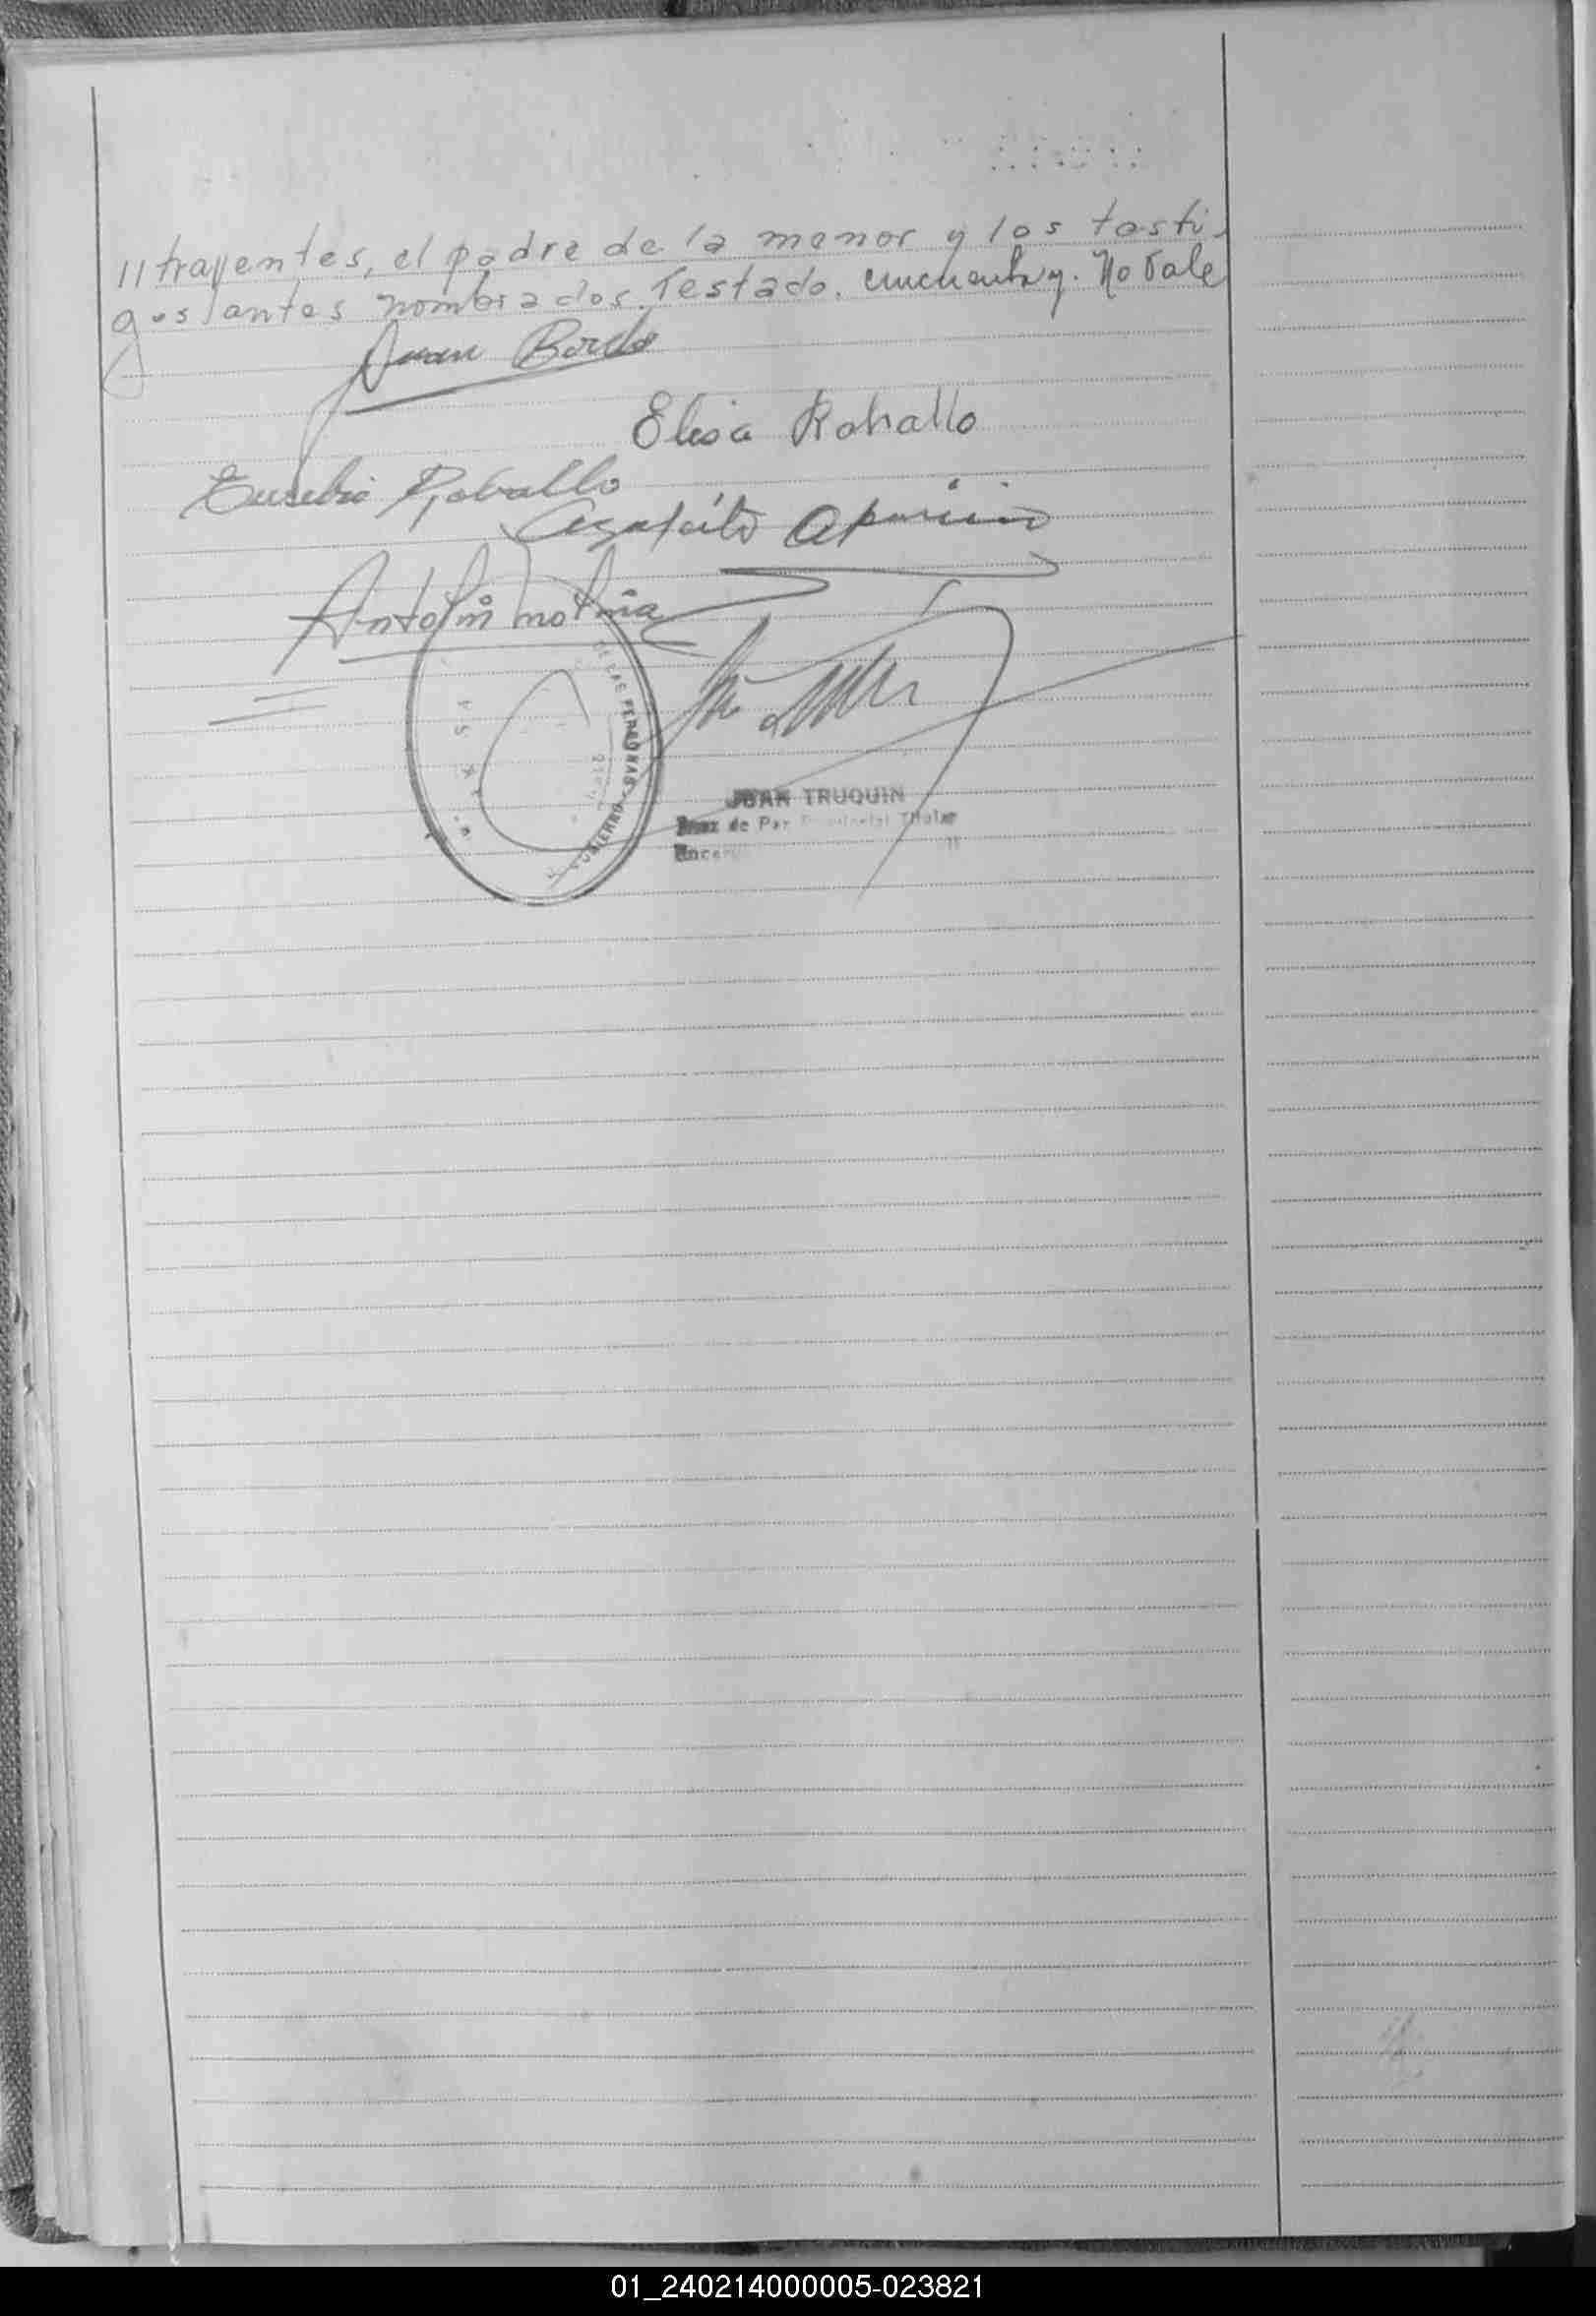 //trayentes, el padre de la menor y los testi-
gos antes nombrados. Testado. cincuenta y. No Vale
Juan Bordo
Elisa Raballo
Eusebio Raballo
Agapito Aparicio
Antolin Molina
DE LAS PERSONAS
GOBIERNO
JUAN TRUQUIN
Juez de Paz Provincial Titular
01_240214000005-023821